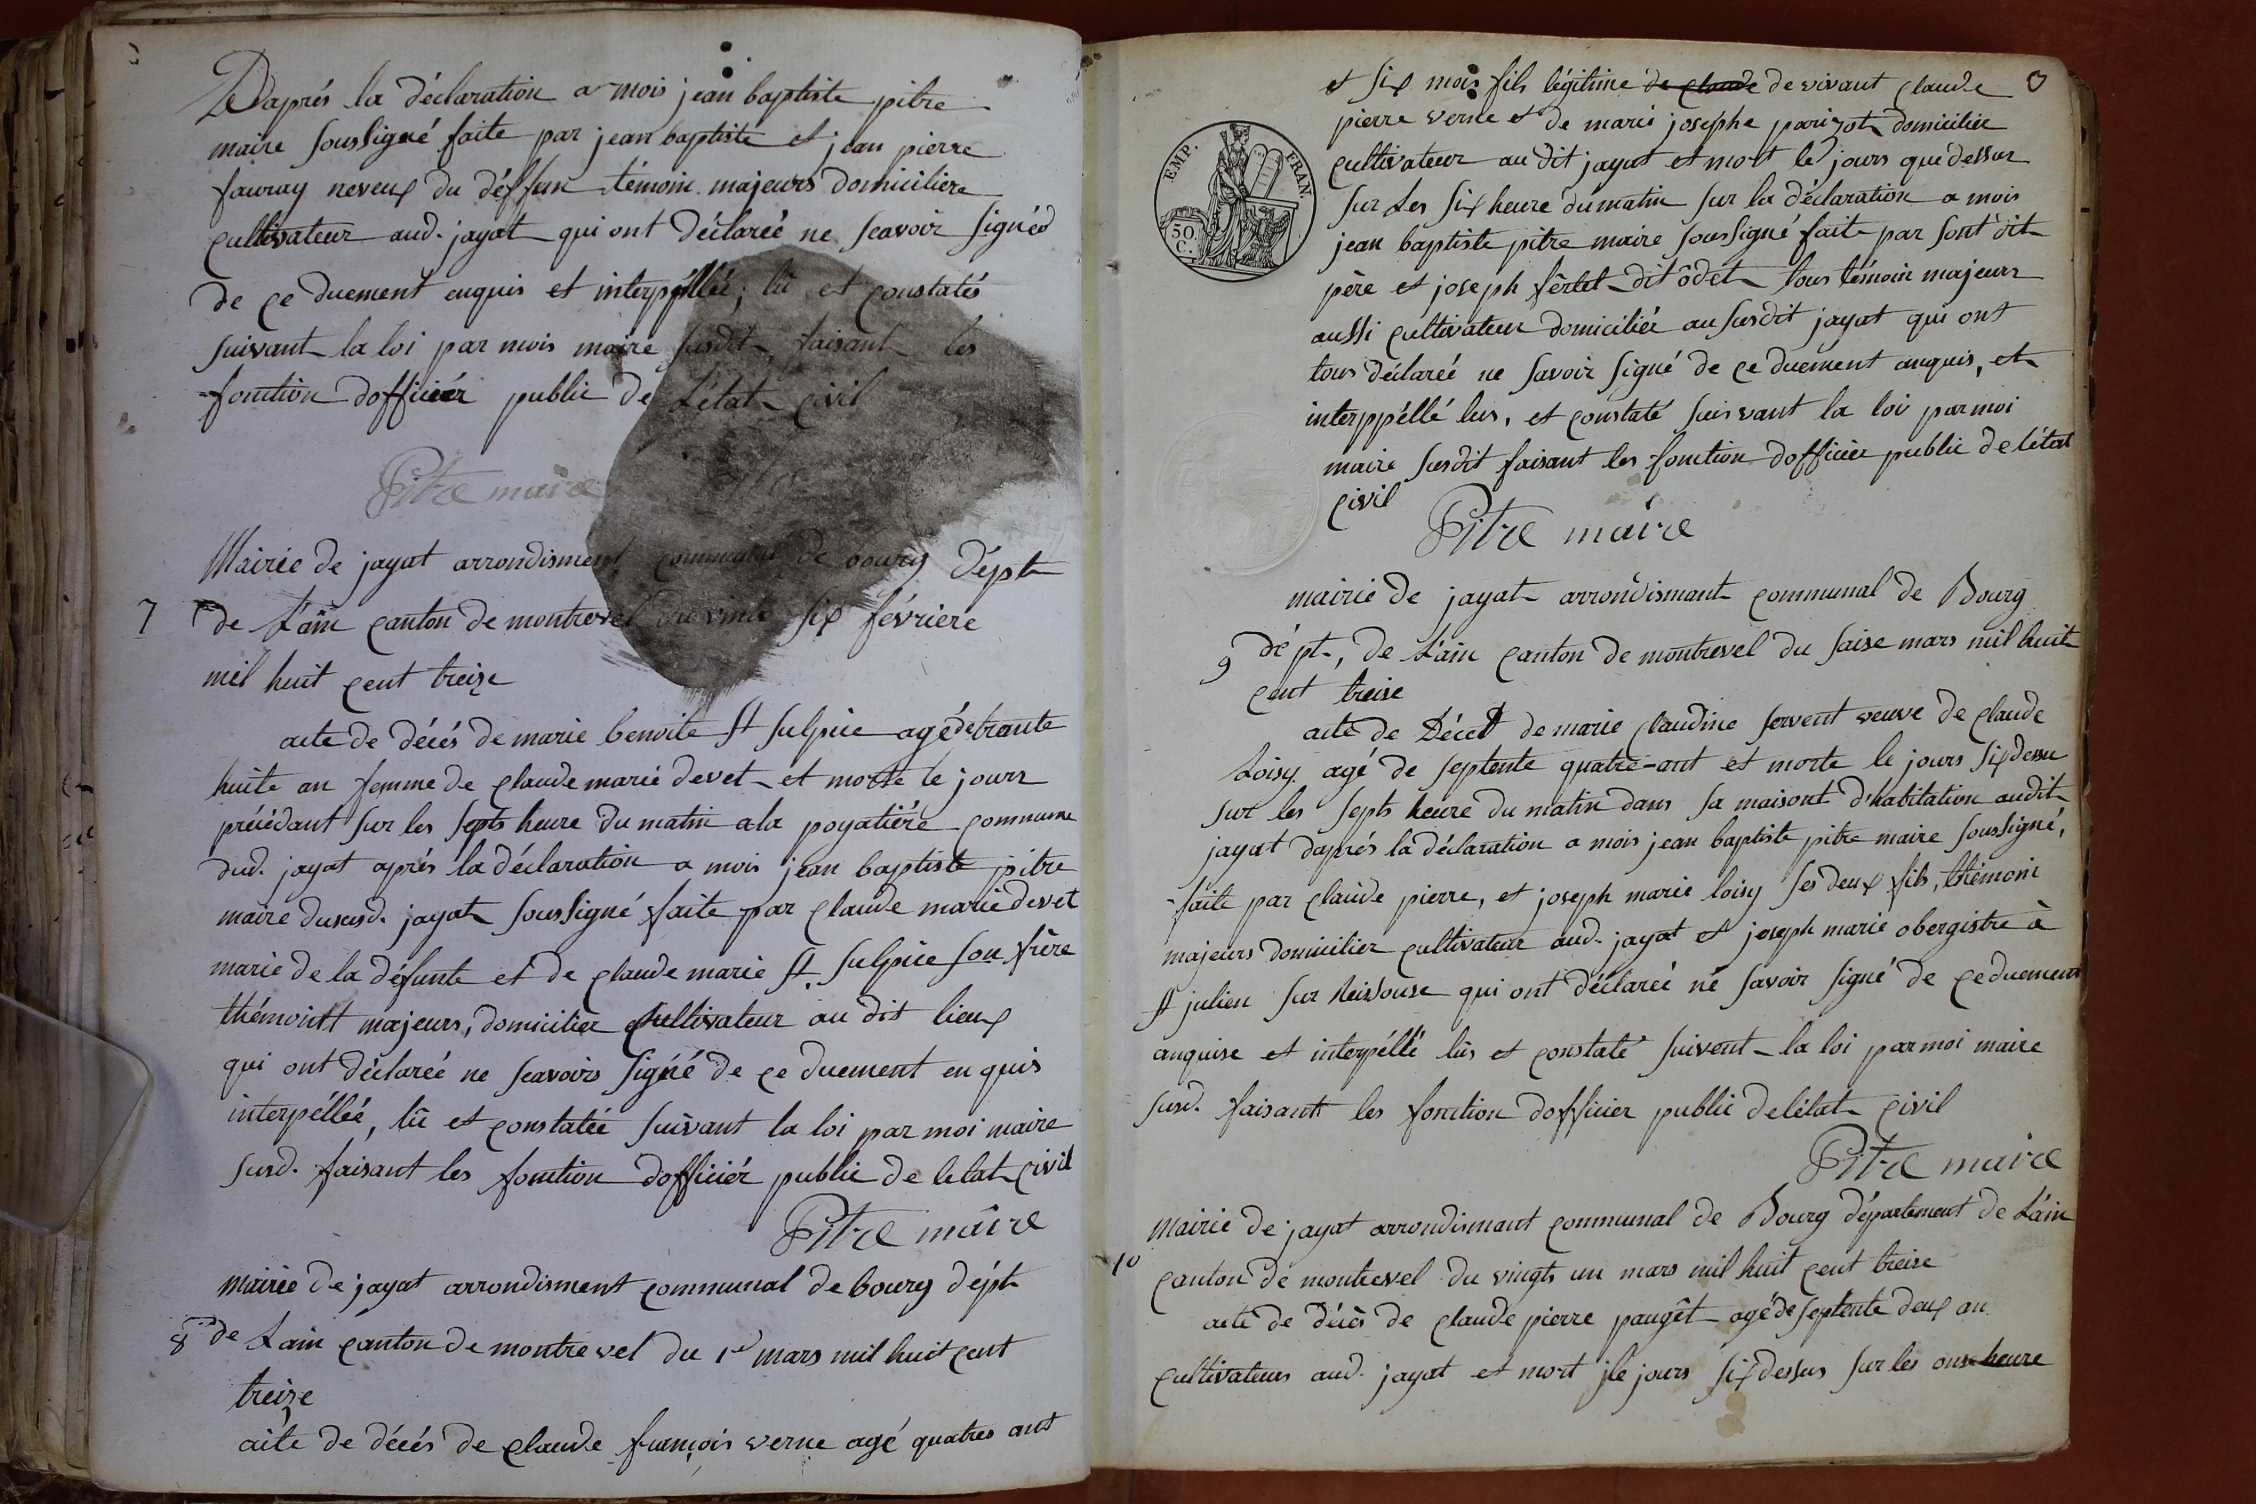 Daprés la déclaration a mois jean baptiste pitre
maire soussigné faite par jean baptiste et jean pierre
fauray neveux du déffun témoin majeurs domiciliere
cultivateur aud. jayat qui ont déclareé ne scavoir signéd
de ce duement enquis et interpéllée, lû et constatés
suivant la loi par mois maire susdit, faisant les
fonction dofficiér public de L'état civil
Pitre maire
Mairie de jayat arrondisment communal de bourg dépt
7 de L'ain canton de montrevel du vint six févriere
mil huit cent treize
acte de décés de marie benoite St Sulpice agé de trante
huite an femme de claude marie devet et morte le jours
précédant sur les septs heure du matin a la poyatiére commune
dud. jayat aprés la déclaration a mois jean baptiste pitre
maire dususd. jayat soussigné faite par claude marie devet
marie de la défunte et de claude marie St Sulpice son frère
thémointt majeurs, domicilier cultivateur au dit lieux
qui ont déclareé ne scavoirs signéé de ce duement enquis
interpéllée, lû et constatéé suivant la loi par moi maire
susd. faisant les fonction dofficiér public de letat civil
Pitre maire
Mairie de jayat arrondisment communal de bourg dépt
8 de Lain canton de montrevel du 1er mars mil huit cent
treize
acte de décés de claude françois verne agé quatres ans
et six mois fils légitime de claude de vivant claude
pierre verne et de marie josephe parizot domicilier
cultivateur au dit jayat et mort le jours que dessur
sur Les six heure du matin sur la déclaration a mois
jean baptiste pitre maire soussigné faite par sont dit
père et joseph fértet dit ôdet tous témoin majeurs
aussi cultivateur domiciliér au susdit jayat qui ont
tous déclareé ne savoir signé de ce duement anquis, et
interppéllé lus, et constaté suisvant la loi par moi
maire susdit faisant les fonction dofficier public de létat
civil
Pitre maire
EMP. FRAN.
50 C.
mairie de jayat arrondismant communal de Bourg
9 dépt, de L'ain canton de montrevel du saise mars mil huit
cent treise
acte de Décet de marie claudine servent veuve de claude
Loisy agé de septente quatre-ant et morte le jours six dessu
sur les septs heure du matin dans sa maisont d'habitation audit
jayat daprés la déclaration a mois jean baptiste pitre maire soussigné,
faite par claude pierre, et joseph marie loisy ses deux fils, thémoin
majeurs domicilier cultivateur aud. jayat et joseph marie obergistre à
St julien sur Reissouse qui ont déclareé né savoir signé de ce duement
anquise et interpéllé lûs et constaté suivent la loi par moi maire
susd. faisant les fonction dofficier public de létat civil
Pitre maire
Mairie de jayat arrondismant communal de Bourg département de L'ain
10 canton de montrevel du vingts un mars mil huit cent treise
acte de décès de claude pierre paugêt agé de septente deux an
cultivateurs aud. jayat et mort le jours six dessus sur les onse heure